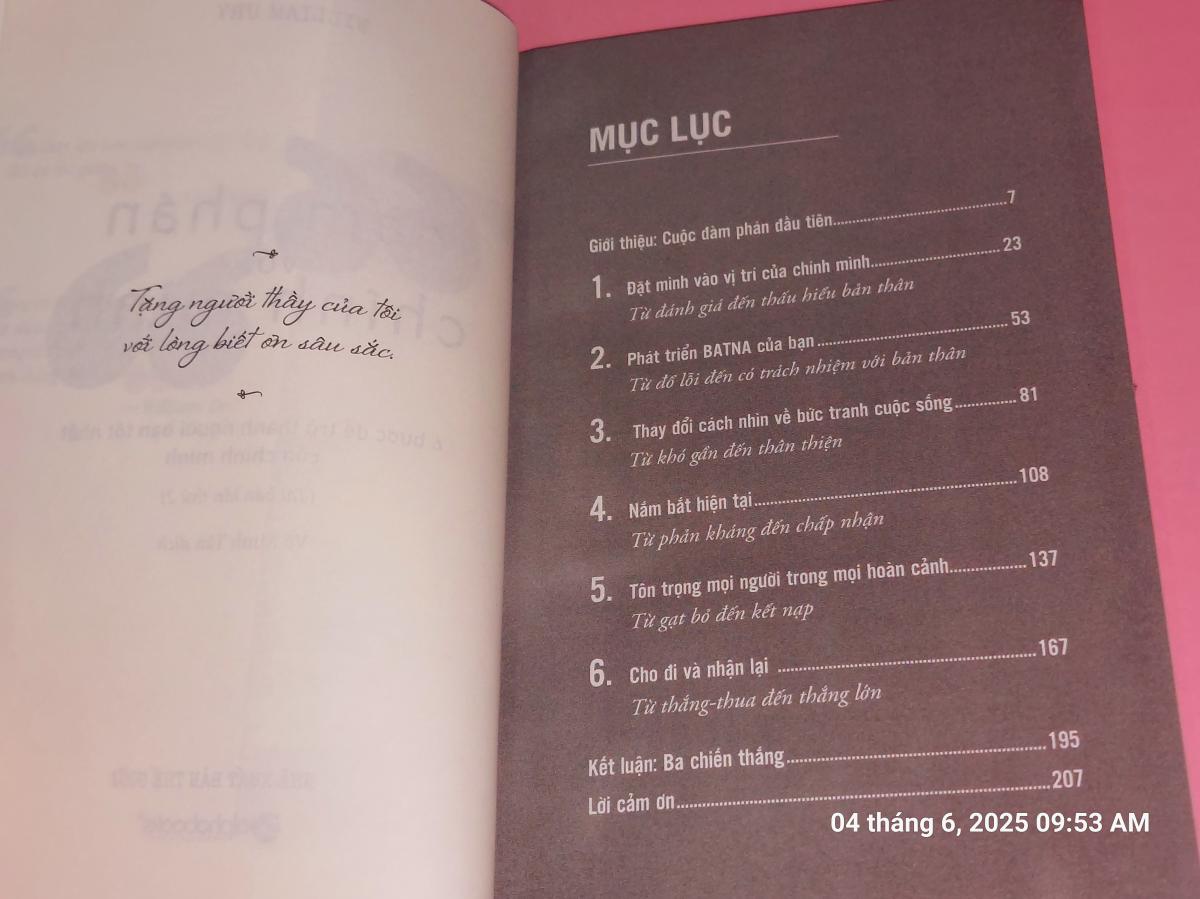 Tặng người thầy của tôi
với lòng biết ơn sâu sắc.
MỤC LỤC
Giới thiệu: Cuộc đàm phán đầu tiên..........7
1. Đặt mình vào vị trí của chính mình..........23
Từ đánh giá đến thấu hiểu bản thân
2. Phát triển BATNA của bạn..........53
Từ đổ lỗi đến có trách nhiệm với bản thân
3. Thay đổi cách nhìn về bức tranh cuộc sống..........81
Từ khó gần đến thân thiện
4. Nắm bắt hiện tại..........108
Từ phản kháng đến chấp nhận
5. Tôn trọng mọi người trong mọi hoàn cảnh..........137
Từ gạt bỏ đến kết nạp
6. Cho đi và nhận lại ..........167
Từ thắng-thua đến thắng lớn
Kết luận: Ba chiến thắng..........195
Lời cảm ơn..........207
04 tháng 6, 2025 09:53 AM